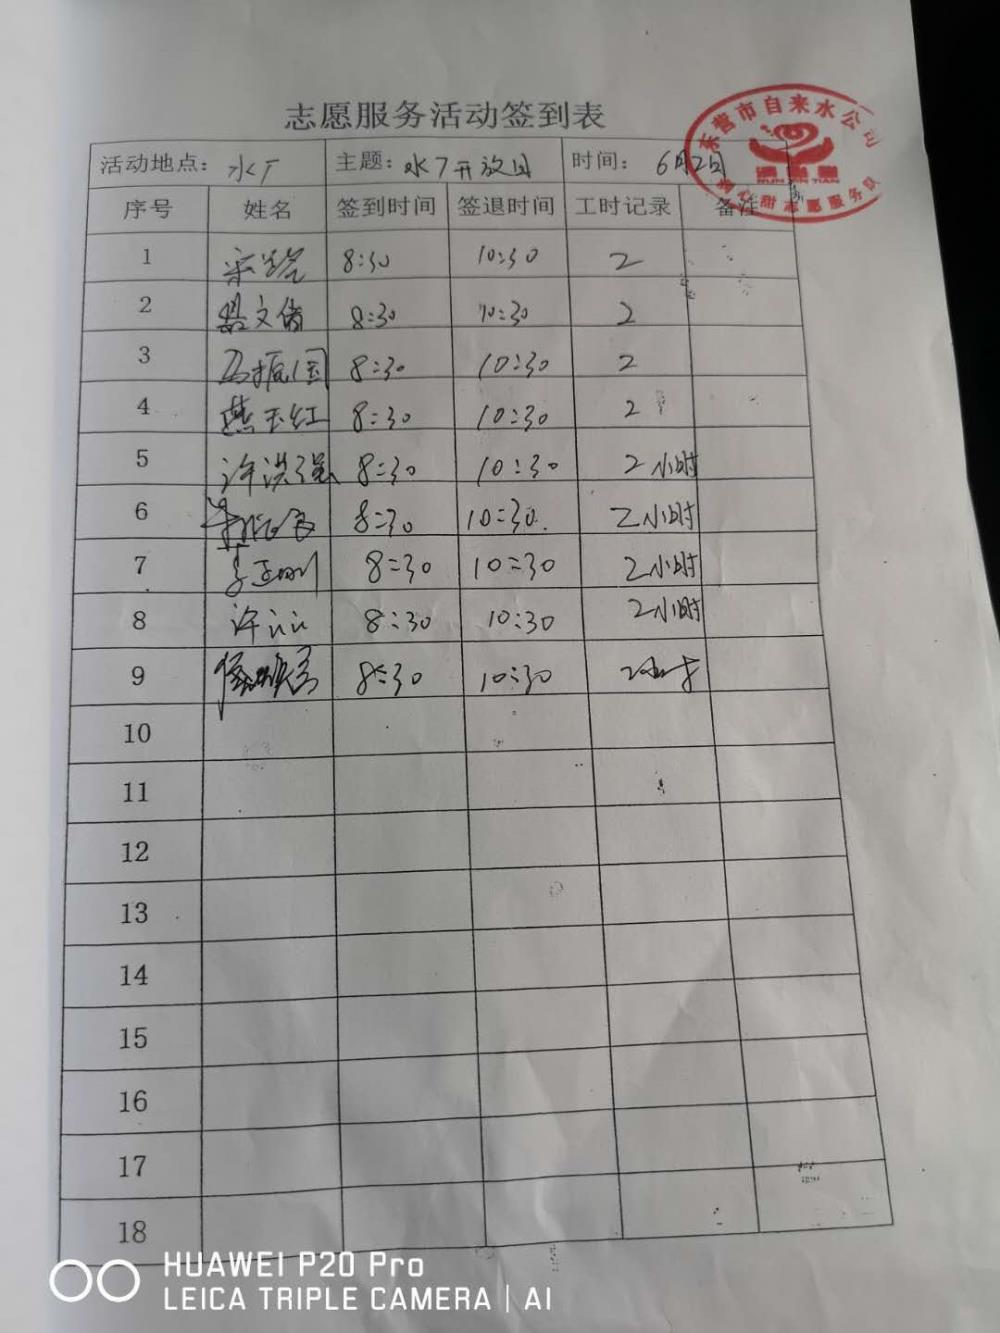 志愿服务活动签到表
东营市自来水公司
润心甜
RUN XIN TIAN
润心甜志愿服务队
活动地点: 水厂 主题: 水厂开放日 时间: 6月2日
序号 姓名 签到时间 签退时间 工时记录 备注
1 8:30 10:30 2
2 8:30 10:30 2
3 马振国 8:30 10:30 2
4 燕玉红 8:30 10:30 2
5 许洪强 8:30 10:30 2小时
6 8:30 10:30 2小时
7 8:30 10:30 2小时
8 许 8:30 10:30 2小时
9 8:30 10:30 2小时
10
11
12
13
14
15
16
17
18
HUAWEI P20 Pro
LEICA TRIPLE CAMERA | AI